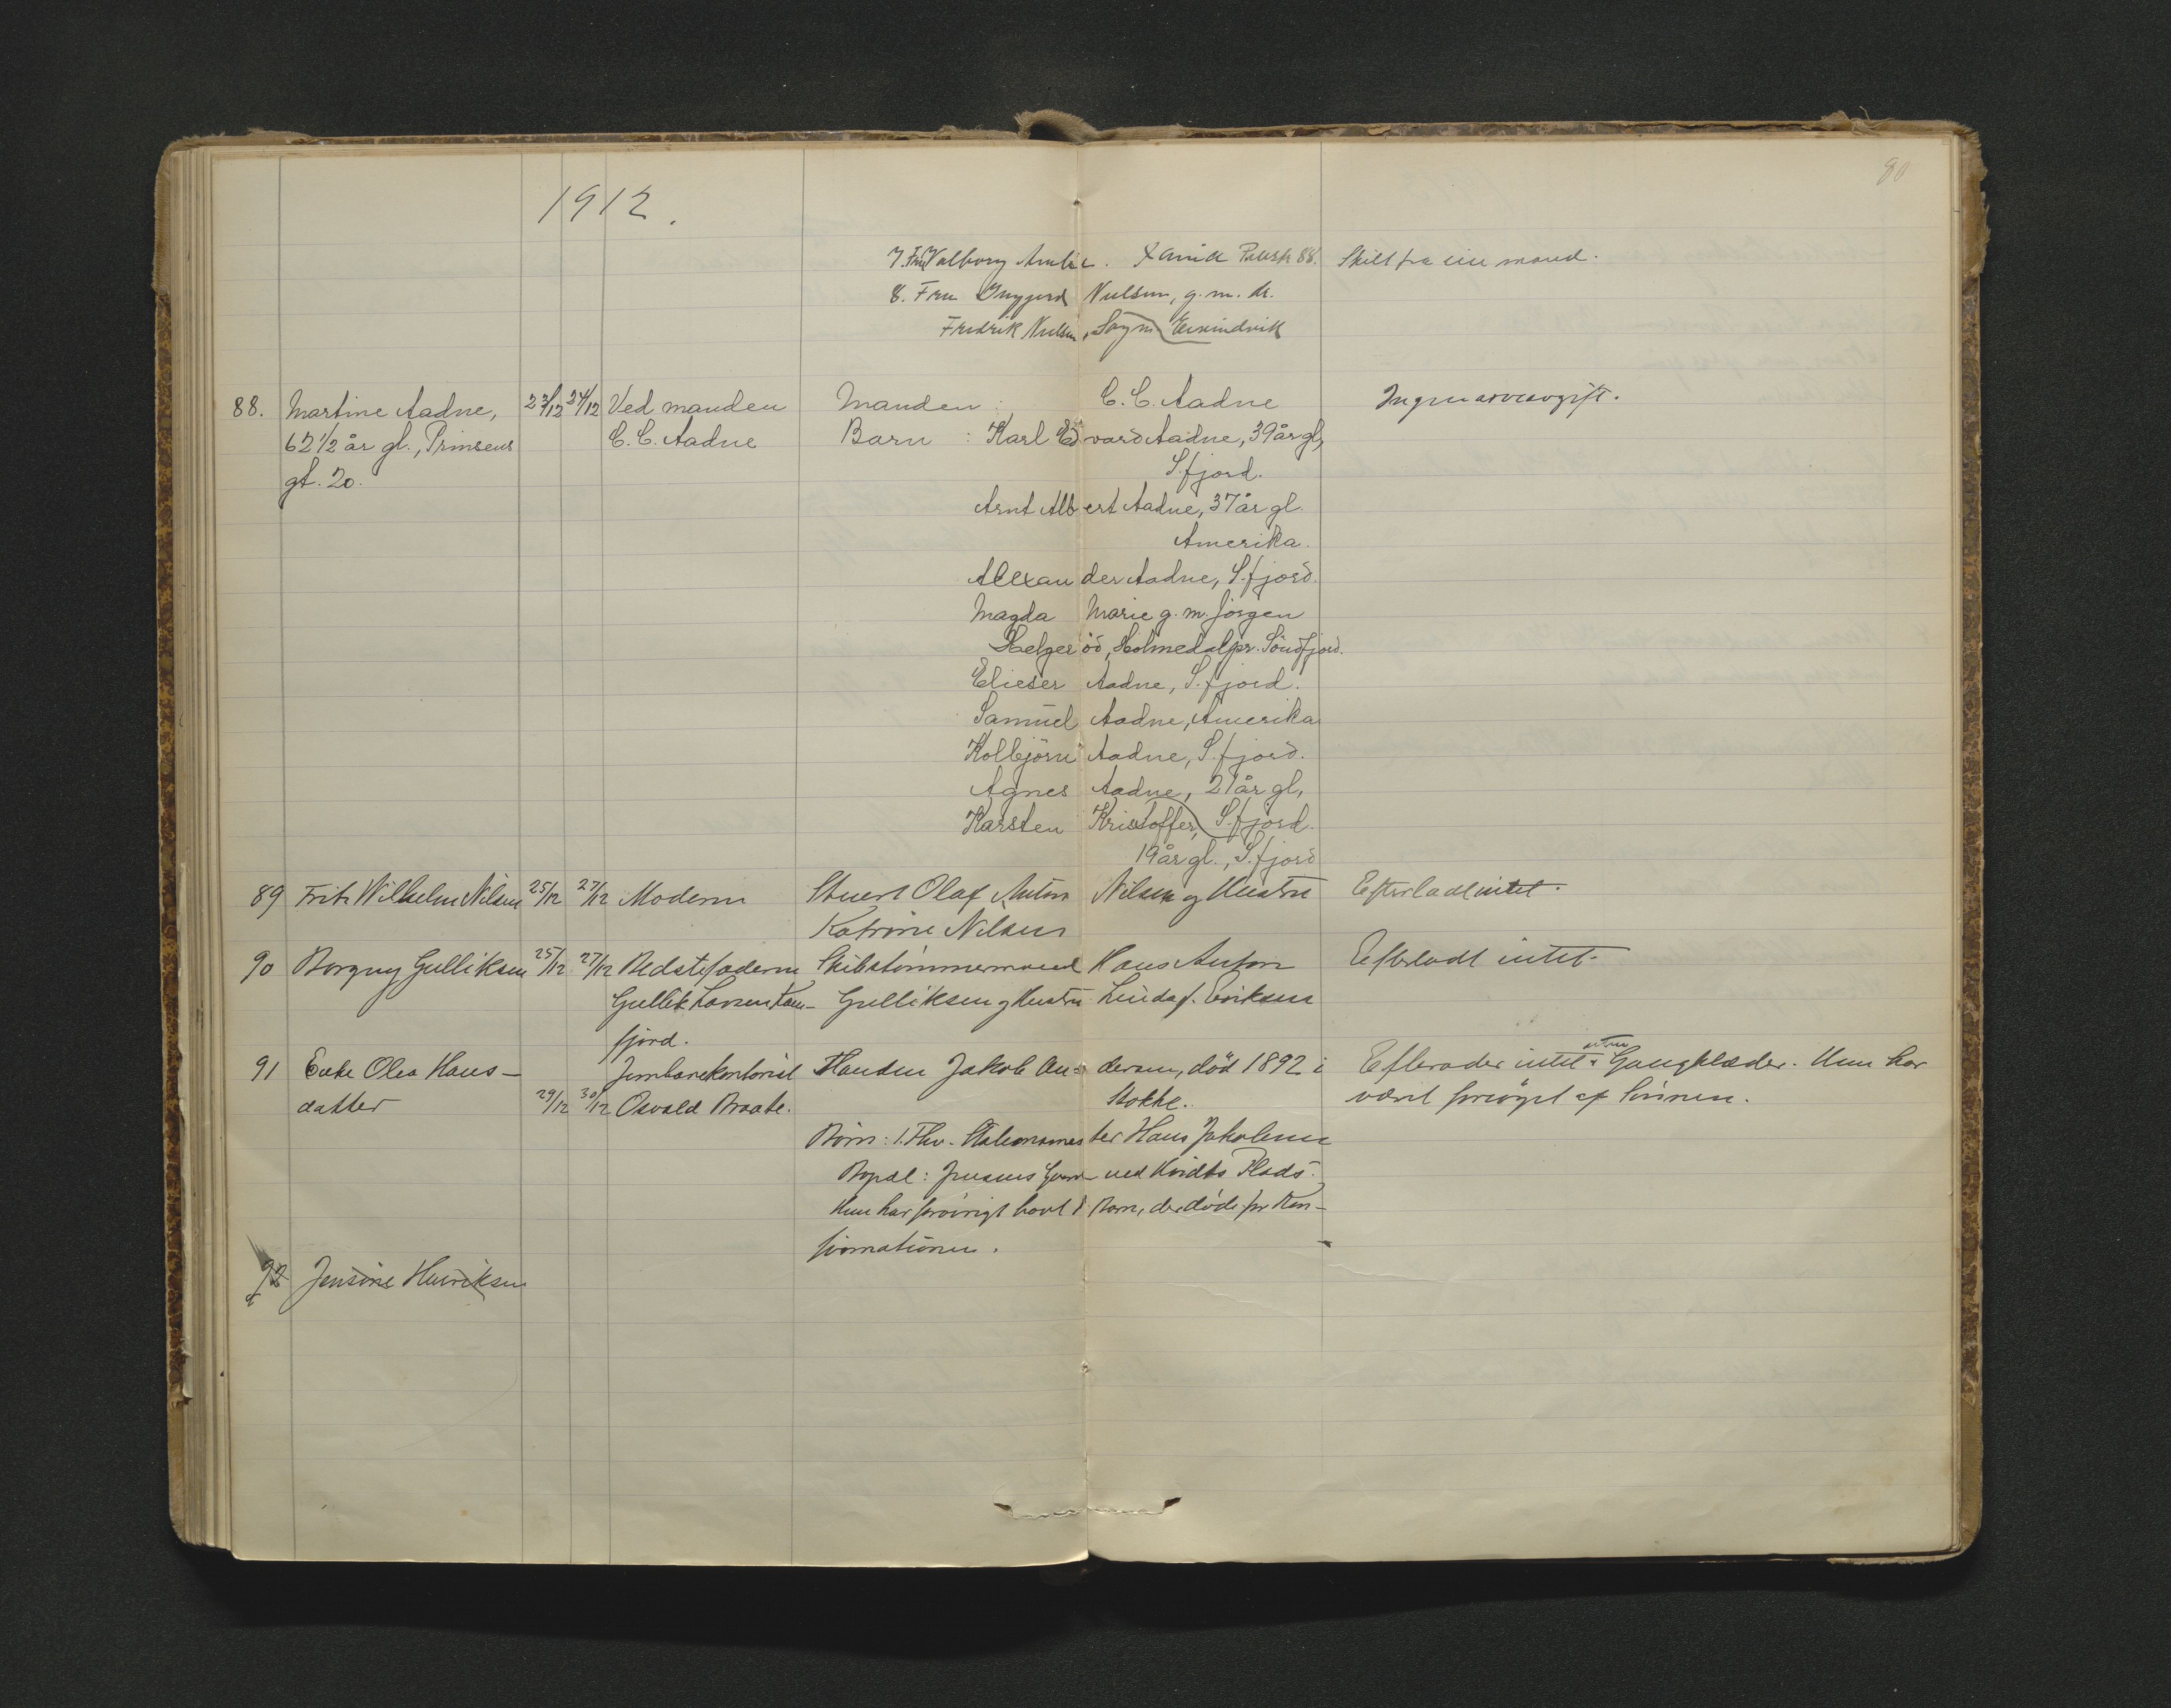 80
1912.
7. Fru Valborg Amlie. Skilt fra sin mand.
8. Fru Nielsen, g. m. dr.
Fredrik Nielsen, Sogn Eivindvik
88. Martine Aadne, 23/12 24/12 Ved manden Manden: C. C. Aadne Ingen arveavgift.
62 1/2 år gl., Prinsens C. C. Aadne Barn: Karl Edvard Aadne, 39 år gl,
gt. 20. S.fjord.
Arnt Albert Aadne, 37 år gl.
Amerika.
Alexander Aadne, S.fjord.
Magda Marie g. m. Jörgen
Helgeröd, Holmedal pr. Söndfjord.
Elieser Aadne, S.fjord.
Samuel Aadne, Amerika
Kolbjörn Aadne, S.fjord.
Agnes Aadne, 21 år gl,
Karsten Kristoffer, S.fjord.
19 år gl., S.fjord
89 Fritz Wilhelm Nilsen 25/12 27/12 Moderen Stuert Olaf Anton Nilsen og Hustru Efterladt intet.
Katrine Nilsen
90 Borgny Gulliksen 25/12 27/12 Bedstefaderen Skibstømmermand Hans Anton Efterladt intet.
Gullik Larsen Gulliksen og Hustru Linda f. Eriksen
fjord.
91 Enke Olea Hans- Jernbanekontorist Manden Jakob Andersen, död 1892 i Efterlader intet uten Gangklæder. Hun har
datter 29/12 30/12 Osvald Braate. Stokke. været forsörget af Sönnen.
Börn: 1. Fhv. Stationsmester Hans Jakobsen
Bopæl: Jensens Gaard ved Hvidts Plads.
Hun har forövrigt havt Barn, der döde før Kon-
firmationen.
92 Jensine Henriksen